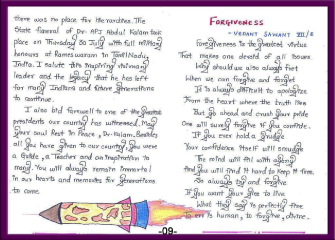 there was no place for Narendra. The
State funeral of Dr. APJ Abdul Kalam took
place on Thursday 30 July with full military
honours in Rameswaram in Tamil Nadu,
India. I salute this inspiring
leader and the legacy that he has left
for many Indians and future generations
to continue.
I also bid farewell to one of the greatest
presidents our country has witnessed. May
your soul Rest In Peace, Dr. Kalam. Besides
all you have given to our country, you were
a Guide, a Teacher and an inspiration to
many. You will always remain immortal
in our hearts and memories for generations
to come.
FORGIVENESS
- VEDANT SAWANT III/E
Forgiveness is the greatest virtue
That makes one devoid of all issues
Why should we also always fret
When we can forgive and forget
It is always difficult to apologize
From the heart where the truth lies
But go ahead and crush your pride
One will surely forgive if you confide.
If you ever hold a grudge
Your confidence itself will smudge
The mind will fill with agony
And you will find it hard to keep it fine.
So always try and forgive
If you want your life to live
What they say is perfectly fine
To err is human, to forgive, divine.
-09-